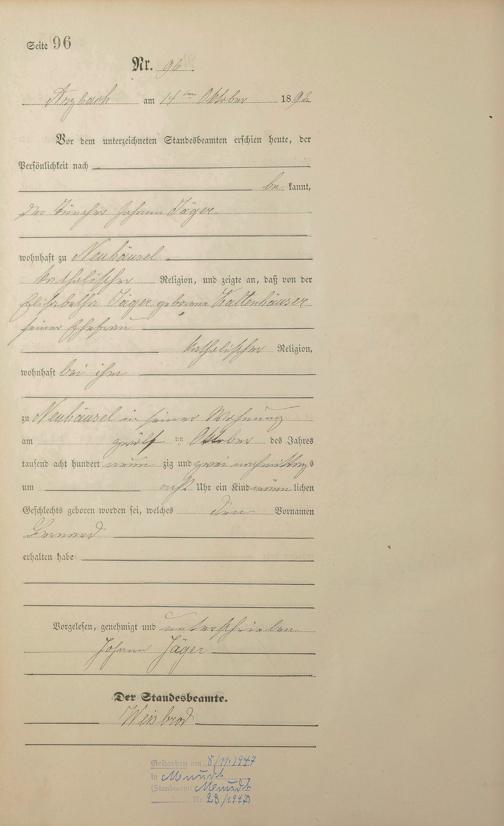 Seite 96
Nr. 96.
Arzbach am 14ten Oktober 1892
Vor dem unterzeichneten Standesbeamten erschien heute, der
Persönlichkeit nach
be kannt,
der Tüncher Johann Jäger
wohnhaft zu Neuhäusel
katholischer Religion, und zeigte an, daß von der
Elisabetha Jäger geborene Kaltenhäuser
seiner Ehefrau
katholischer Religion,
wohnhaft bei ihm
zu Neuhäusel in seiner Wohnung
am zwölf ten Oktober des Jahres
tausend acht hundert neun zig und zwei nachmittags
um acht Uhr ein Kind männ lichen
Geschlechts geboren worden sei, welches den Vornamen
Bernard
erhalten habe
Vorgelesen, genehmigt und unterschrieben
Johann Jäger
Der Standesbeamte.
Weisbrod
Gestorben am 8/11.1947
in
(Standesamt
Nr. 23/1947)